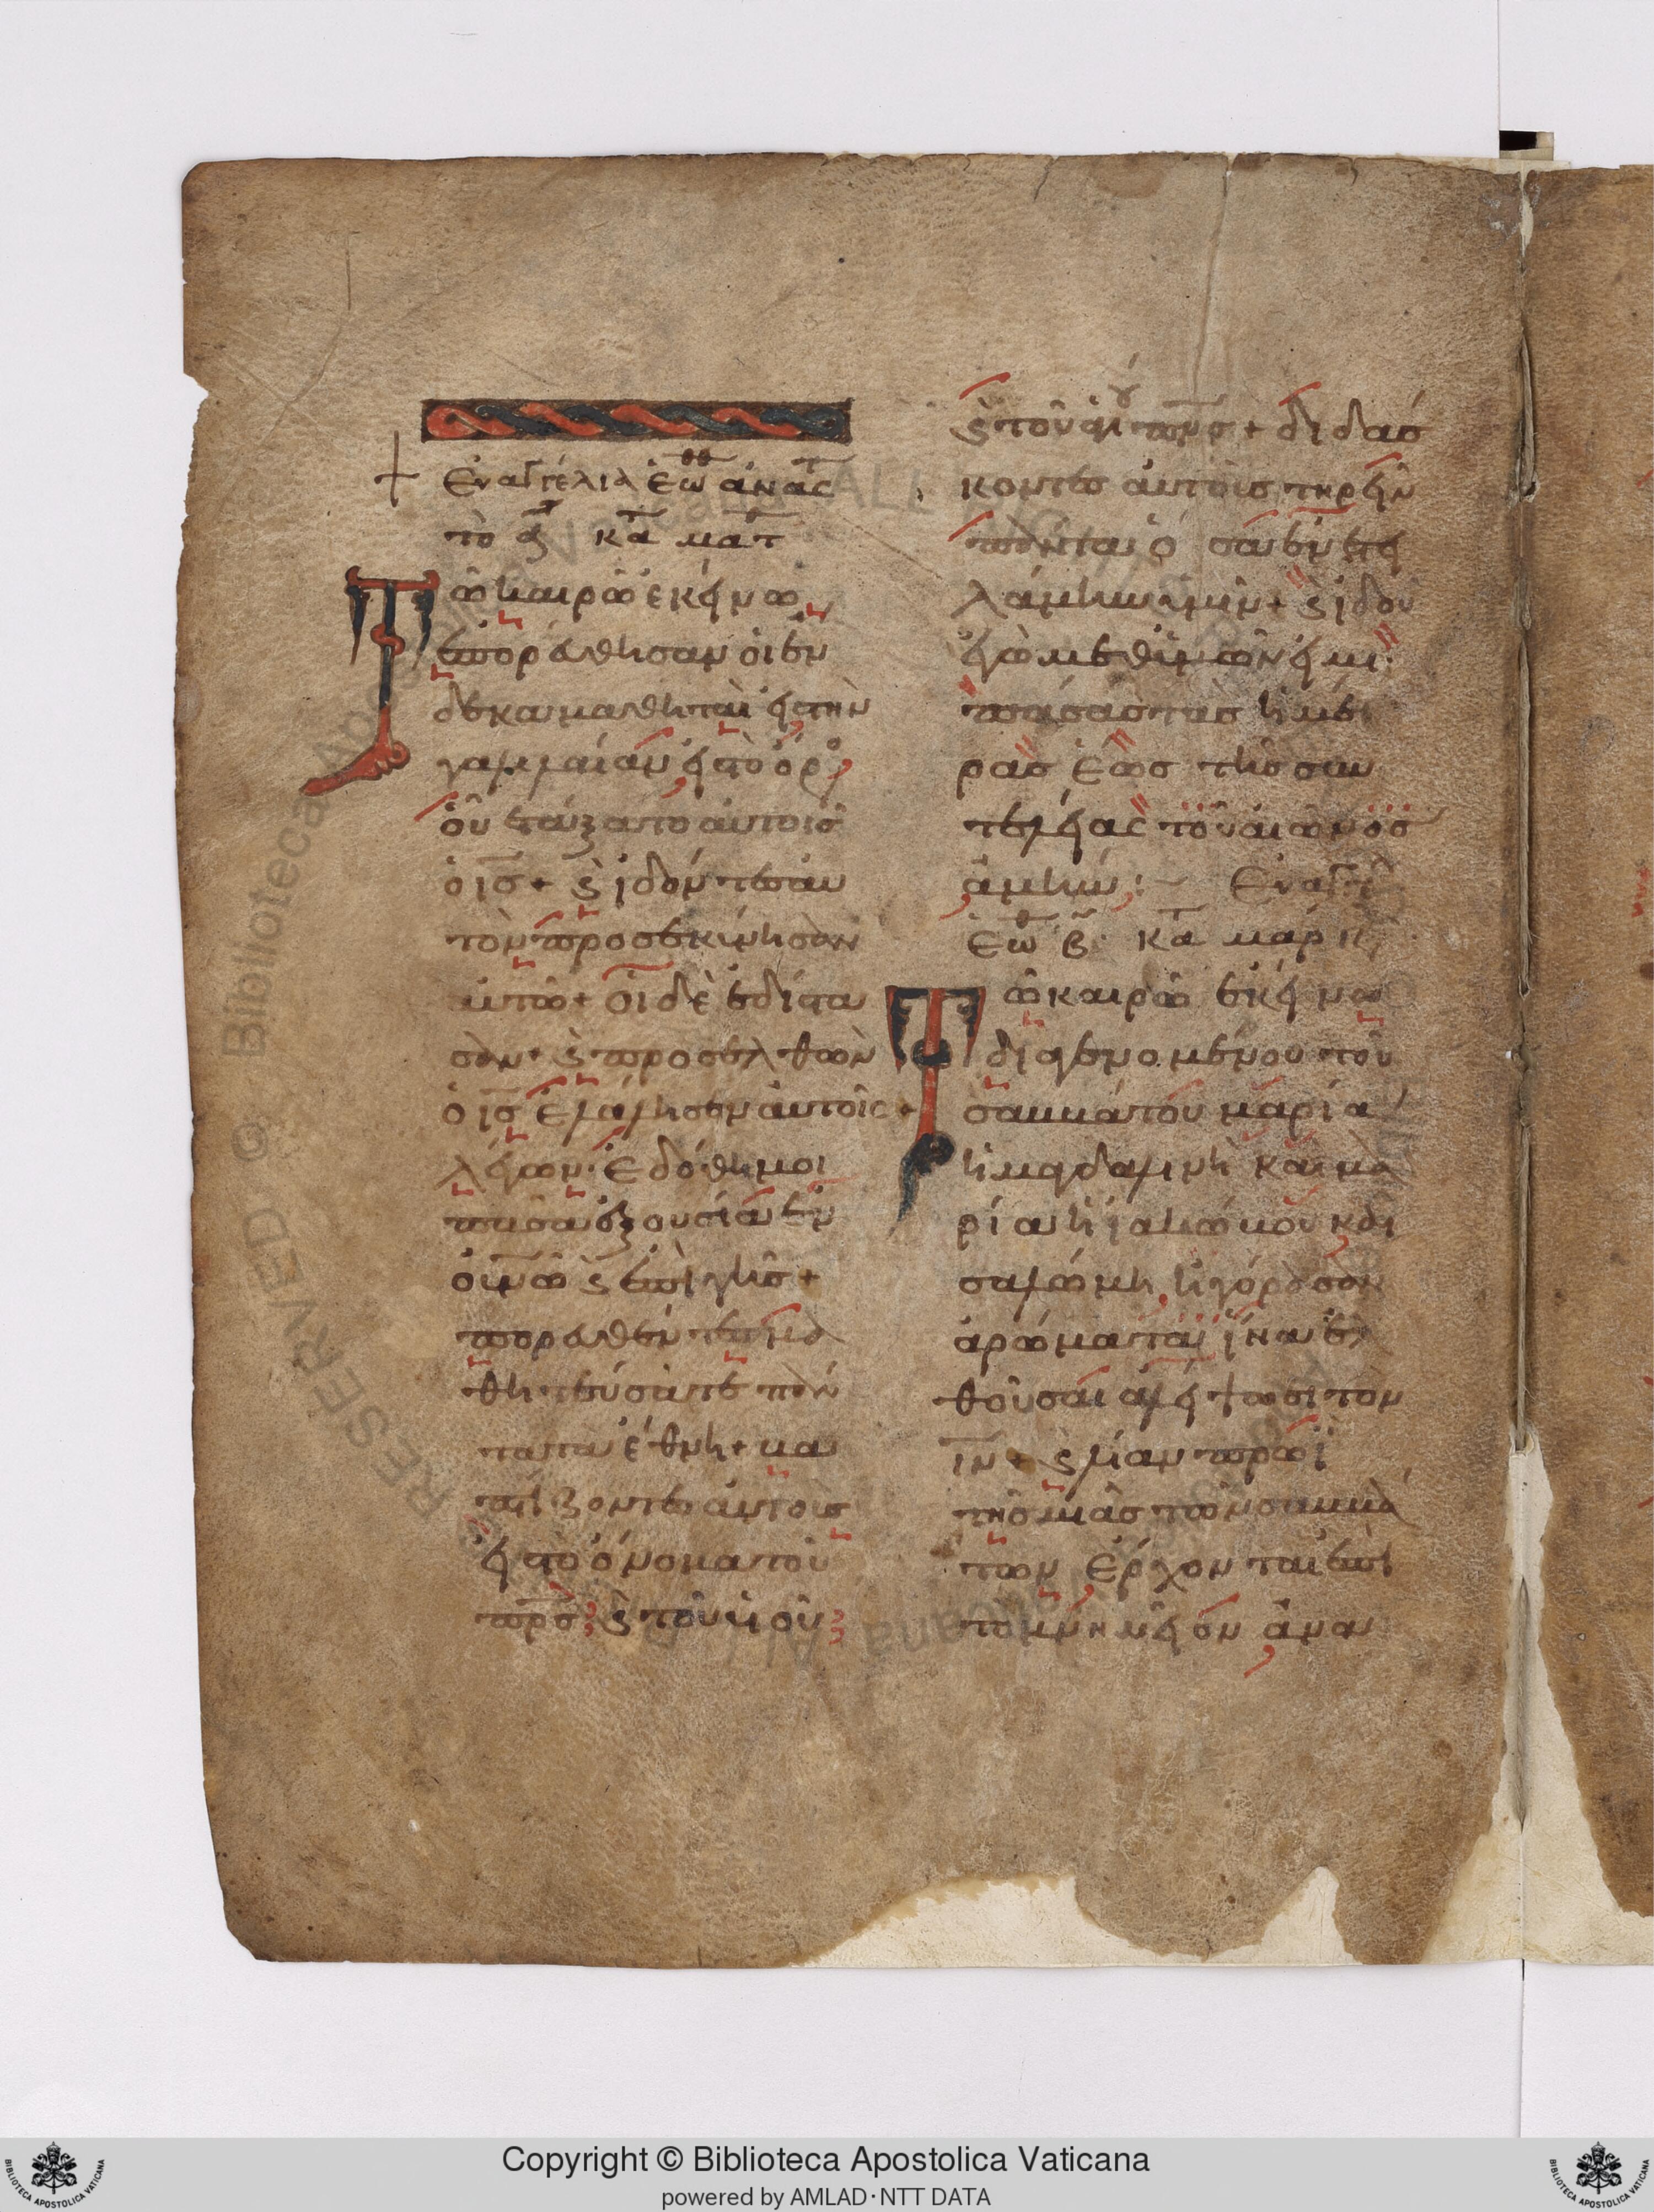 Εὐαγγέλια ἑωθ ἀναστ
τὸ α κατ ματθ
Τῶ καιρῶ ἐκείνω
ἐπορεύθησαν οἱ ἕν
δεκα μαθηταὶ εἰς τὴν
γαλιλαίαν εἰς τὸ ὄρος
οὗ ἐτάξατο αὐτοῖς
ὁ ις + ϗ ἰδόντες αὐ
τὸν προσεκύνησαν
αὐτῶ + οἱ δὲ ἐδίστα
σαν + ϗ προσελθὼν
ὁ ις ἐλάλησεν αὐτοῖς +
λέγων · ἐδόθη μοι
πᾶσα ἐξουσία ἐν
οὐνῶ ϗ ἐπὶ γῆς +
πορευθέντες μα
θητεύσατε πάν
τα τὰ ἔθνη + βα
πτίζοντες αὐτοὺς
εἰς τὸ ὄνομα τοῦ
πρς ϗ τοῦ υἱοῦ
ϗ τοῦ ἁγίου πνς + διδάσ
κοντες αὐτοὺς τηρεῖν
πάντα ὅσα ἐνετει
λάμην ὑμῖν + ϗ ἰδοὺ
ἐγὼ μεθ ὑμῶν εἰμι ·
πάσας τὰς ἡμέ
ρας ἕως τῆς συν
τελείας τοῦ αἰῶνος
ἀμήν :~ Εὐαγγ
ἑωθ β · κατ μάρκ
Τῶ καιρῶ ἐκείνω
διαγενομένου τοῦ
σαββάτου μαρία
ἡ μαγδαληνὴ καὶ μα
ρία ἡ ἰακώβου καὶ
σαλώμη ἠγόρασαν
ἀρώματα ἵνα ἐλ
θοῦσαι ἀλείψωσι τὸν
ιν + ϗ λίαν πρωῒ
τῆς μιᾶς τῶν σαββά
των ἔρχονται ἐπὶ
τὸ μνημεῖον ἀνα
Copyright © Biblioteca Apostolica Vaticana
powered by AMLAD·NTT DATA